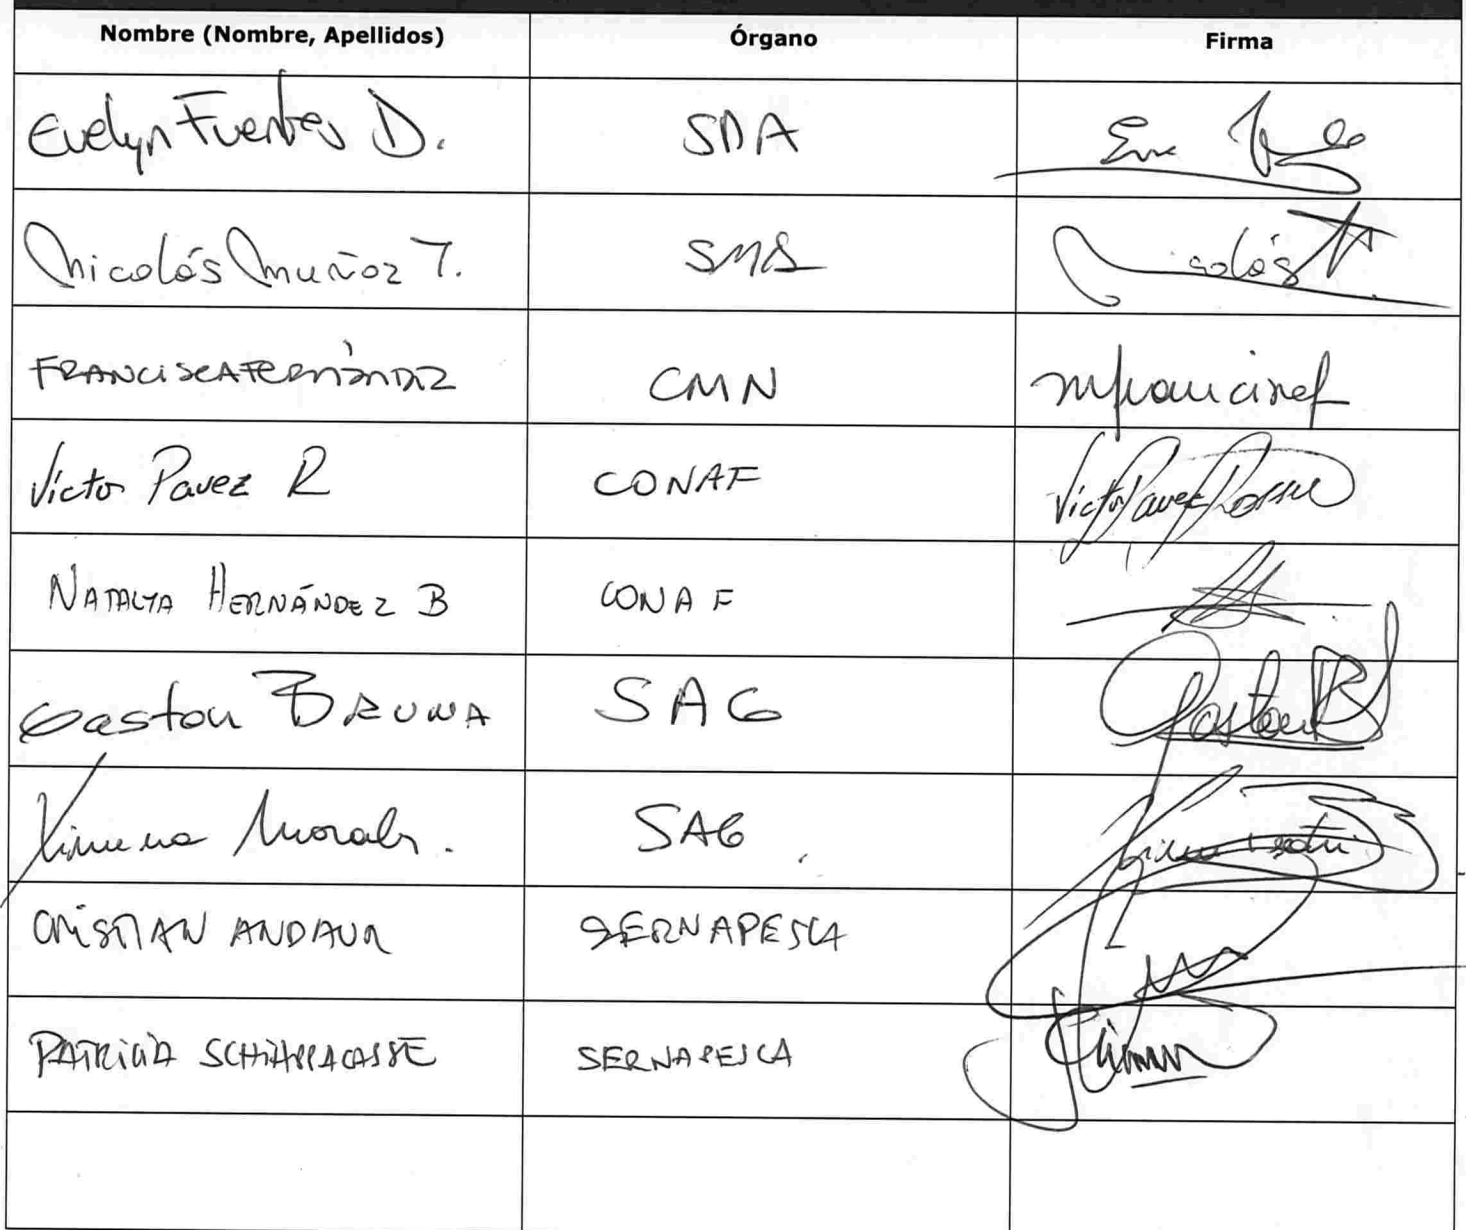 Nombre (Nombre, Apellidos) Órgano Firma
Evelyn Fuentes D. SMA
Nicolás Muñoz T. SMA Nicolás
FRANCISCA FERNÁNDEZ CMN
Víctor Pavez R CONAF Víctor Pavez
NATALYA HERNÁNDEZ B CONAF
Gaston BRUNA SAG Gaston B
Ximena Morales. SAG
CRISTIAN ANDAUR SERNAPESCA
PATRICIA SCHIAPPACASSE SERNAPESCA